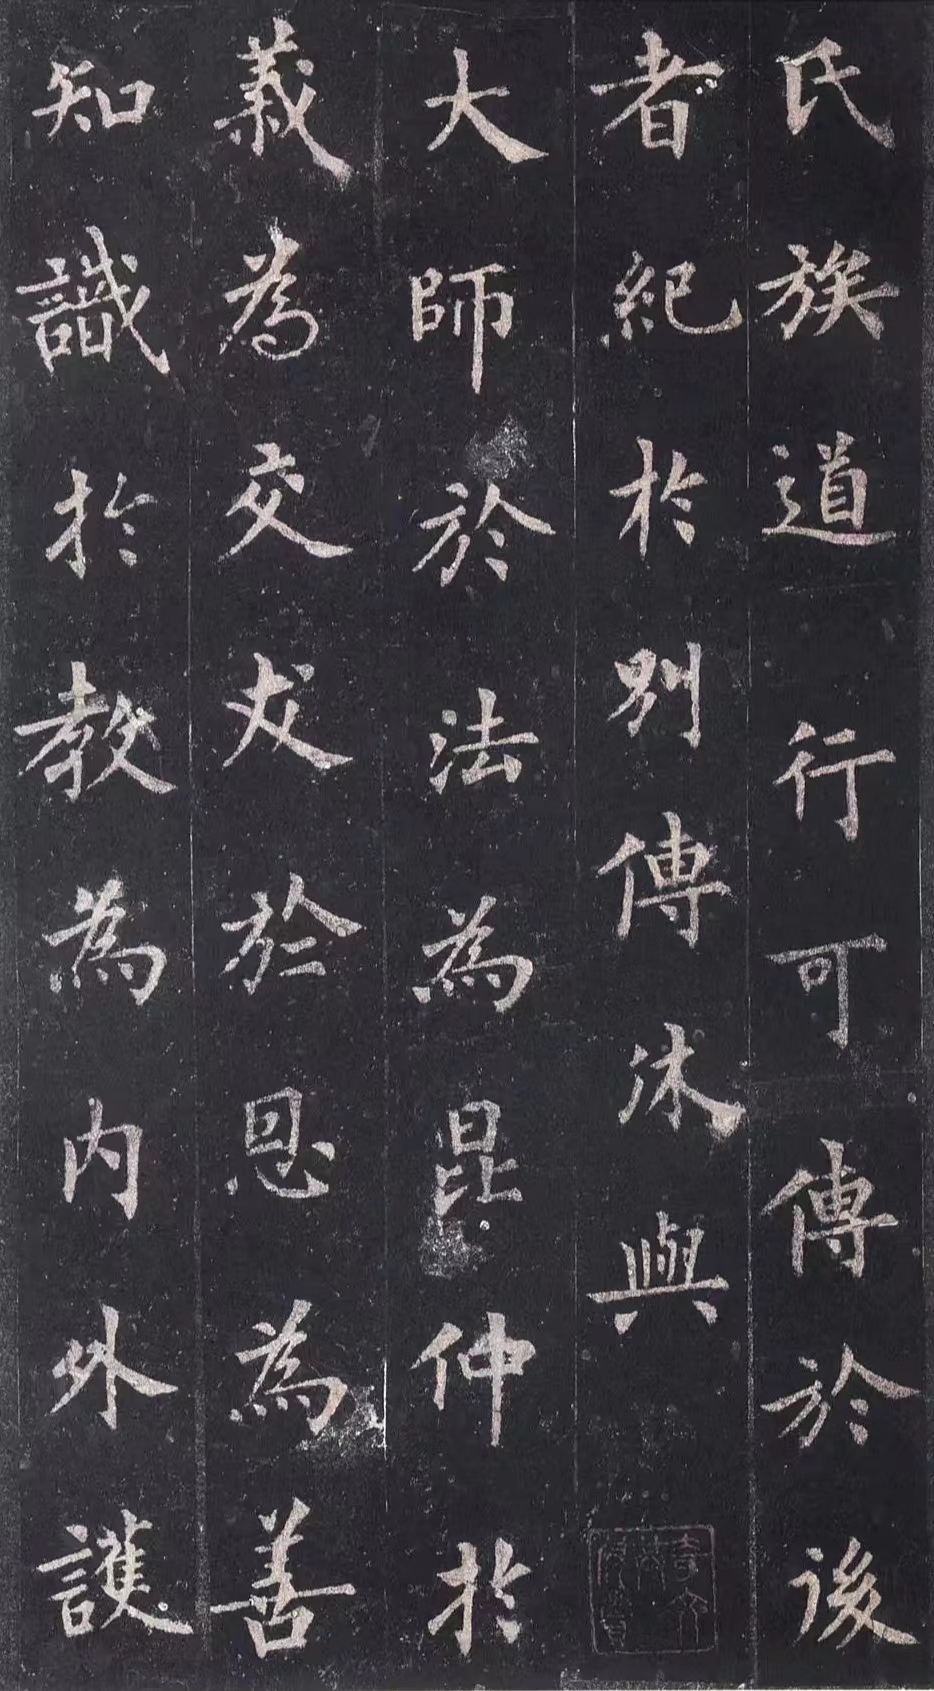 氏族道行可傳於後
者紀於別傳休與
大師於法為昆仲於
義為交友於恩為善
知識於教為內外護